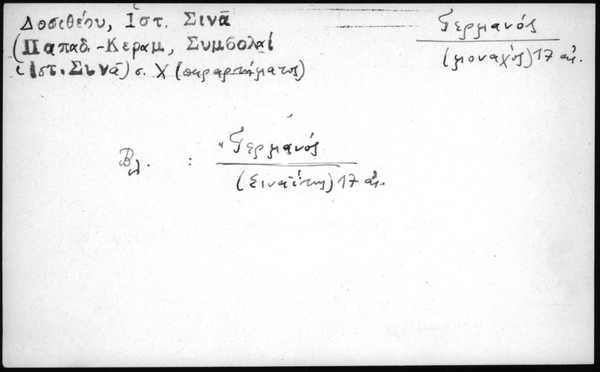 Δοσιθέου, Ἱστ. Σινᾶ
(Παπαδ.-Κεραμ, Συμβολαί
(Ἱστ. Σινᾶ) σ. Χ (παραρτήματος)
Γερμανός
(μοναχός) 17 αἰ.
Βλ. : Γερμανός
(Σιναΐτης) 17 αἰ.